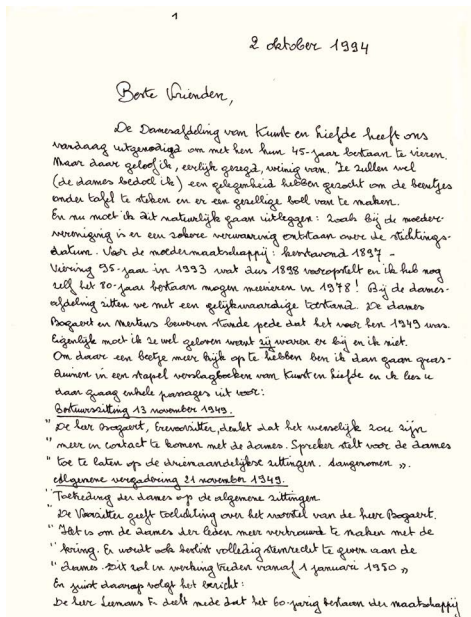 1
2 oktober 1994
Beste Vrienden,
De Damesafdeling van Kunst en Liefde heeft ons
vandaag uitgenodigd om met hen hun 45-jaar bestaan te vieren.
Maar daar geloof ik, eerlijk gezegd, weinig van. Ze zullen wel
(de dames bedoel ik) een gelegenheid hebben gezocht om de beentjes
onder tafel te steken en er een gezellige boel van te maken.
En nu moet ik dit natuurlijk gaan uitleggen: zoals bij de moeder-
vereniging is er een zekere verwarring ontstaan over de stichtings-
datum. Voor de moedermaatschappij: kerstavond 1897 -
Viering 95-jaar in 1993 wat dus 1898 vooropstelt en ik heb nog
zelf het 80-jaar bestaan mogen meevieren in 1978! Bij de dames-
afdeling zitten we met een gelijkwaardige toestand. De dames
Bogaert en Mertens beweren stande pede dat het voor hen 1949 was.
Eigenlijk moet ik ze wel geloven want zij waren er bij en ik niet.
Om daar een beetje meer kijk op te hebben ben ik dan gaan gras-
duinen in een stapel verslagboeken van Kunst en Liefde en ik lees u
daar graag enkele passages uit voor:
Bestuurszitting 13 november 1949.
" De heer Bogaert, Erevoorzitter, denkt dat het wenselijk zou zijn
" meer in contact te komen met de dames. Spreker stelt voor de dames
" toe te laten op de driemaandelijkse zittingen. Aangenomen ».
Algemene vergadering 21 november 1949.
" Toetreding der dames op de algemene zittingen
" De Voorzitter geeft toelichting over het voorstel van de heer Bogaert.
" Het is om de dames der leden meer vertrouwd te maken met de
" kring. Er wordt ook beslist volledig stemrecht te geven aan de
" dames. Dit zal in werking treden vanaf 1 januari 1950 »
En juist daarop volgt het bericht:
De heer Leemans Fr deelt mede dat het 60-jarig bestaan der maatschappij